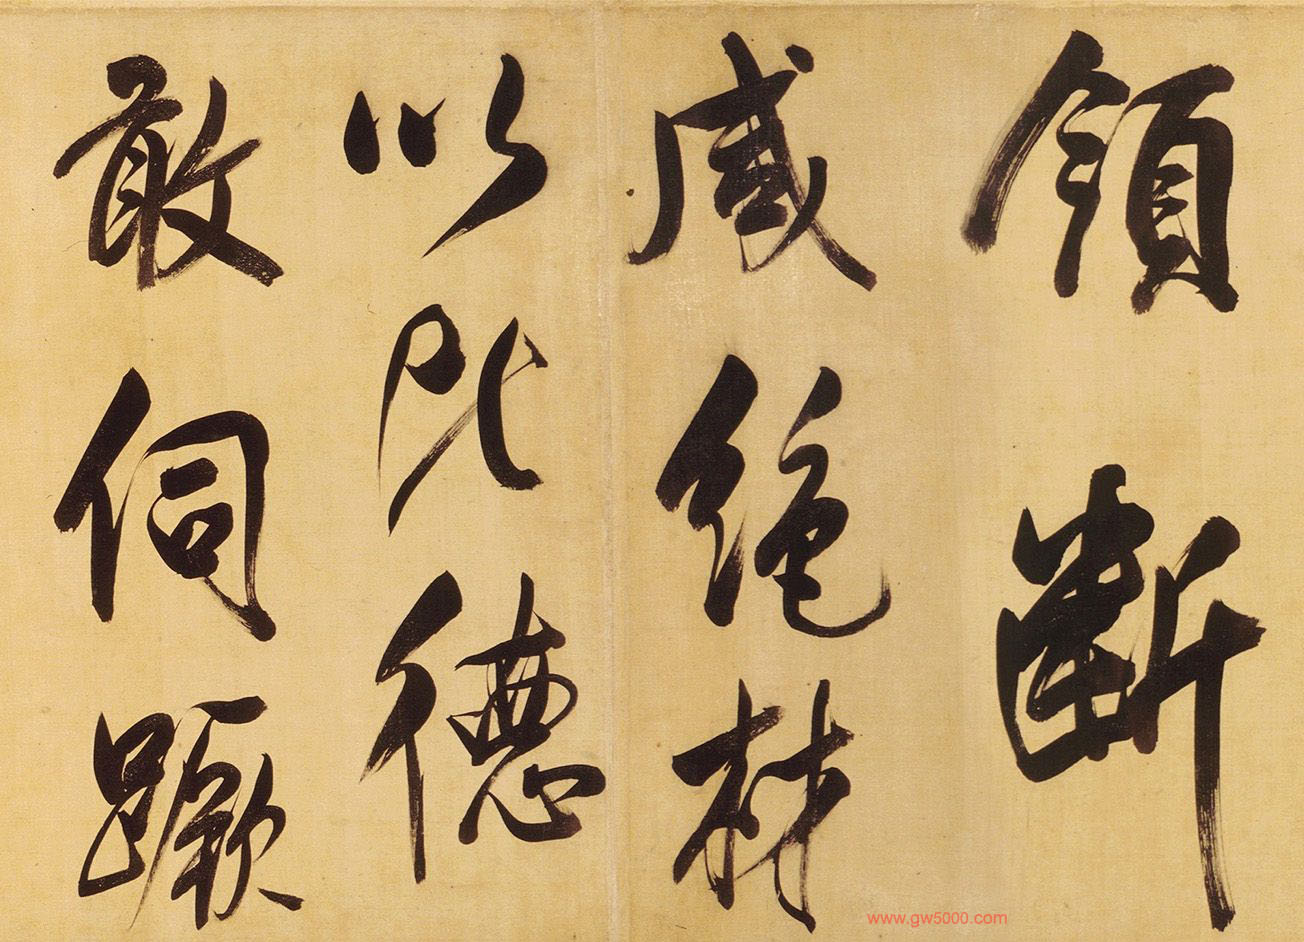 領斷
咸絕材
以比德
敢伺蹶
www.gw5000.com